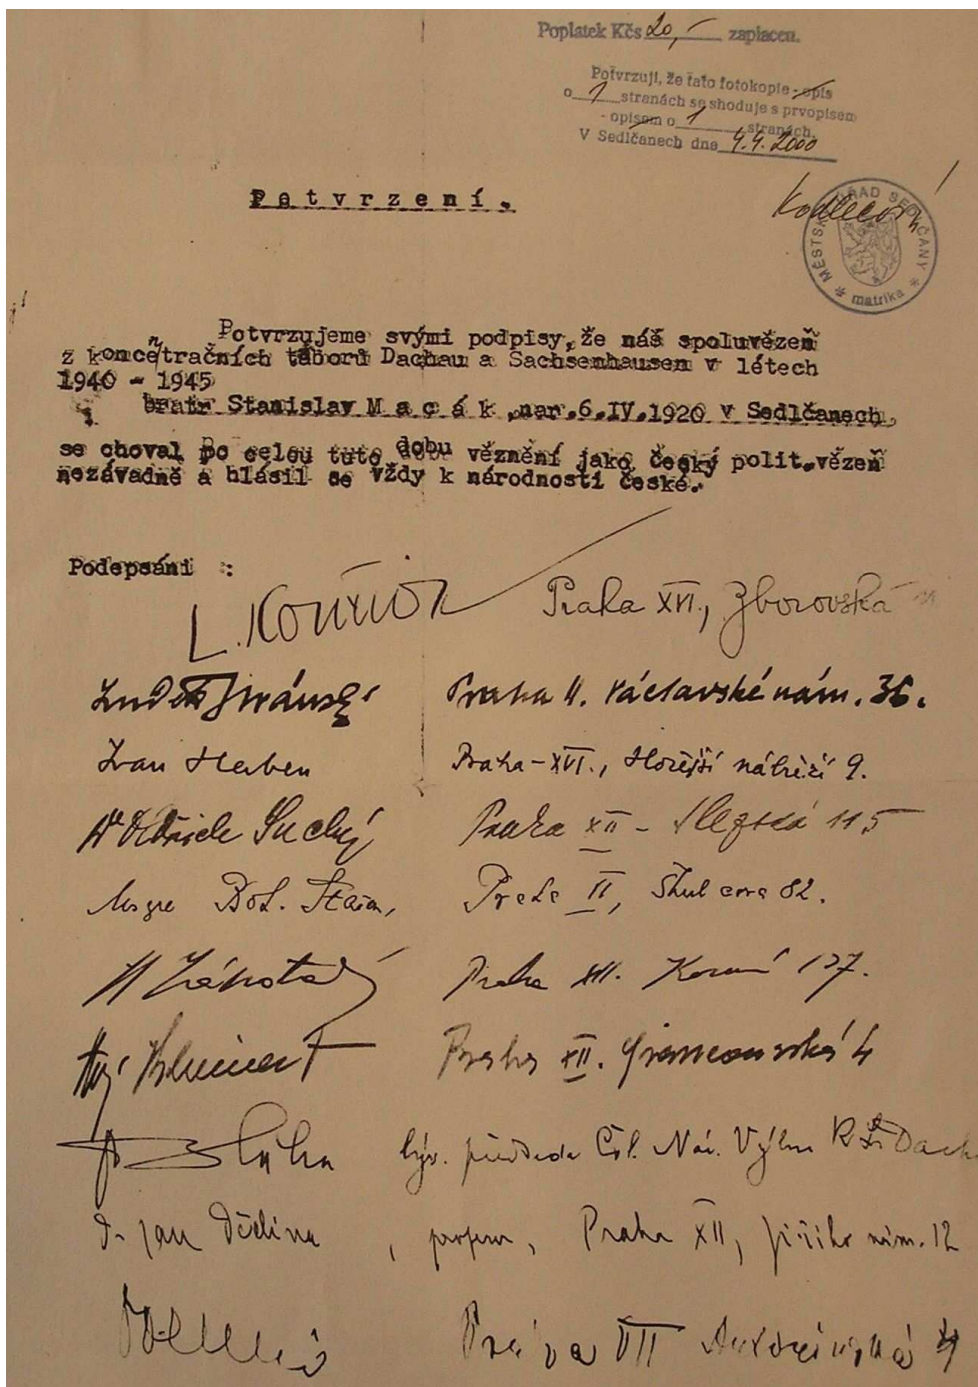 Poplatek Kčs 20,- zaplacen.
Potvrzuji, že tato fotokopie - opis
o 1 stranách se shoduje s prvopisem
- opisem o 1 stranách.
V Sedlčanech dne 4.4.2000
MĚSTSKÝ ÚŘAD SEDLČANY
matrika
Potvrzení.
Potvrzujeme svými podpisy, že náš spoluvězeň
z koncentračních táborů Dachau a Sachsenhausen v létech
1940 - 1945
bratr Stanislav Macák, nar. 6.IV.1920 v Sedlčanech,
se choval po celou tuto dobu věznění jako český polit. vězeň
nezávadně a hlásil se vždy k národnosti české.
Podepsáni :
Praha XVI., Zborovská
Praha II. Václavské nám. 36.
Ivan Herben Praha-XVI., Hořejší nábřeží 9.
Dr Oldřich Suchý Praha XII - Slezská 115
Praha II, 82.
Praha XII. Korunní 127.
Praha XII. 4
Bláha býv. předseda Čsl. Nár. Výbu KT Dach
Dr Jan Dědina, profesor, Praha XII, Jiřího nám. 12
Praha VII 4